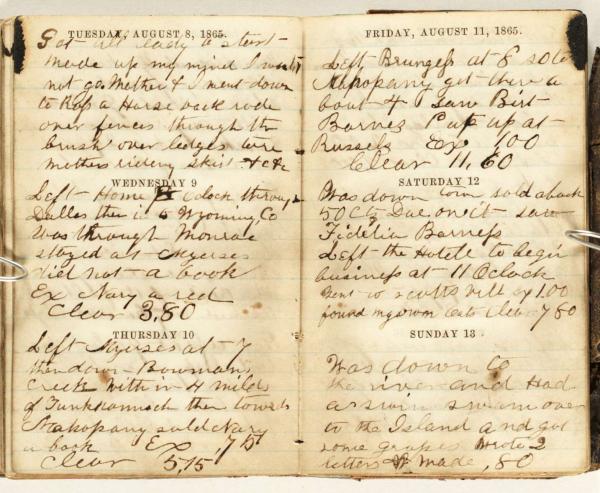 TUESDAY, AUGUST 8, 1865.
Got all ready to start
made up my mind I would
not go Mother & I went down
to Ross a Horse back rode
over fences through the
brush over ledges tore
mothers riding skirt &c&c
WEDNESDAY 9
Left Home o clock through
Dallas then to Wyoming Co
was through Monroe
stayed at Myerses
did not a book
Ex Nary a red
Clear 3,80
THURSDAY 10
Left Myerses at 7
then down Bowmans
Creek within 4 miles
of Tunkhannock then towards
Mahopany sold Nary
a book Ex ,75
Clear 5,15
FRIDAY, AUGUST 11, 1865.
Left at 8 so to
Mahopany got there a
bout 4 saw Birt
Barnes Put up at
Russels Ex 1,00
Clear 11,60
SATURDAY 12
Was down town sold a book
50 Cts Due on it saw
Fidelia Barness
Left the Hotell to begin
business at 11 Oclock
went to scotts vill Ex 1.00
found my own oats Clear 7 80
SUNDAY 13
Was down to
the river and Had
a swim swam over
to the Island and got
some grapes wrote 2
letters made ,80